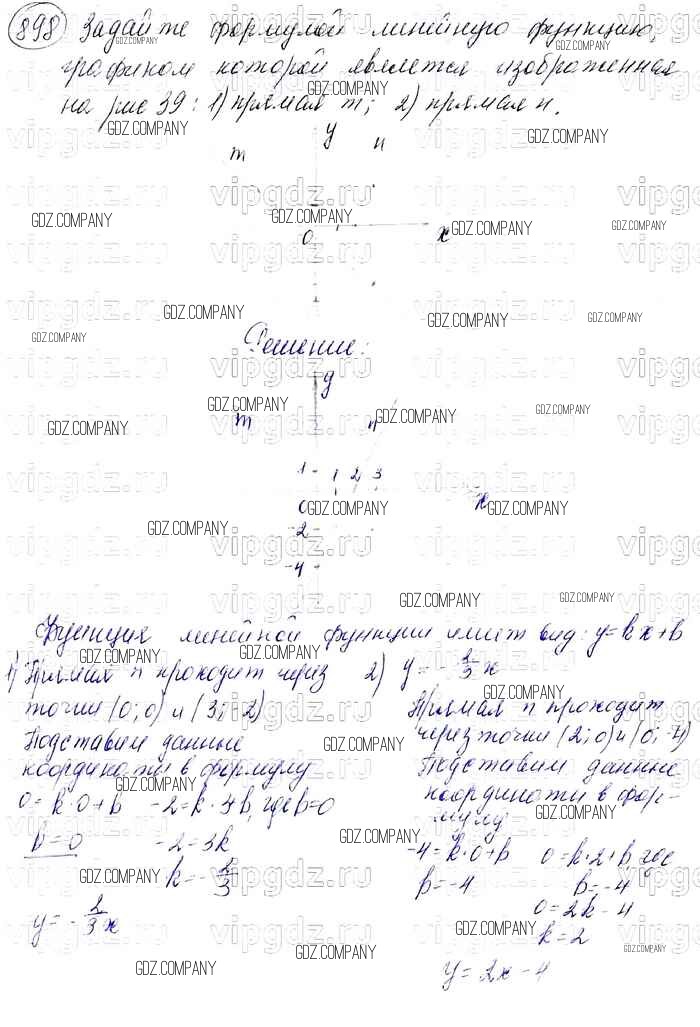 898 Задайте формулой линейную функцию,
графиком которой является изображенная
на рис 39: 1) прямая m; 2) прямая n.
y
m
n
0
x
Решение:
y
m
n
1
1 2 3
0
x
-2
-4
Функция линейной функции имеет вид: y=kx+b
1) Прямая n проходит через
точки (0; 0) и (3; -2)
Подставим данные
координаты в формулу
0=k·0+b -2=k·3+b, где b=0
b=0 -2=3k
k=-2/3
y=-2/3x
2) y=-2/3x
Прямая n проходит
через точки (2; 0) и (0; -4)
Подставим данные
координаты в фор-
мулу
-4=k·0+b 0=k·2+b где
b=-4 b=-4
0=2k-4
k=2
y=2x-4
GDZ.COMPANY
vipgdz.ru